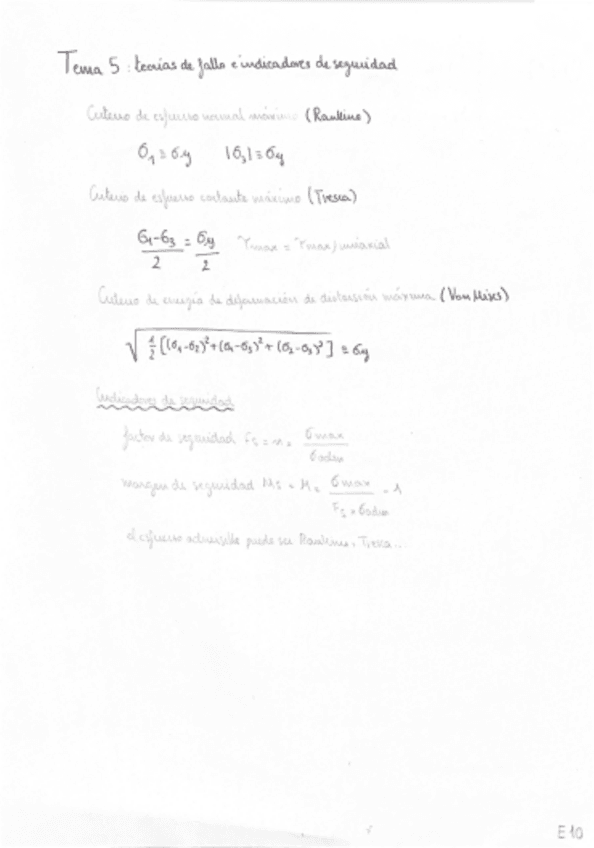 Tema 5: teorías de fallo e indicadores de seguridad
Criterio de esfuerzo normal máximo (Rankine)
σ₁ ≡ σy |σ₃| ≡ σy
Criterio de esfuerzo cortante máximo (Tresca)
(σ₁-σ₃)/2 = σy/2 τmax = τmax,uniaxial
Criterio de energía de deformación de distorsión máxima (Von Mises)
√(1/2 [(σ₁-σ₂)²+(σ₁-σ₃)²+(σ₂-σ₃)²]) ≡ σy
Indicadores de seguridad
factor de seguridad Fs = n = σmax/σadm
margen de seguridad Ms = M = σmax/(Fs × σadm) - 1
el esfuerzo admisible puede ser Rankine, Tresca...
E10